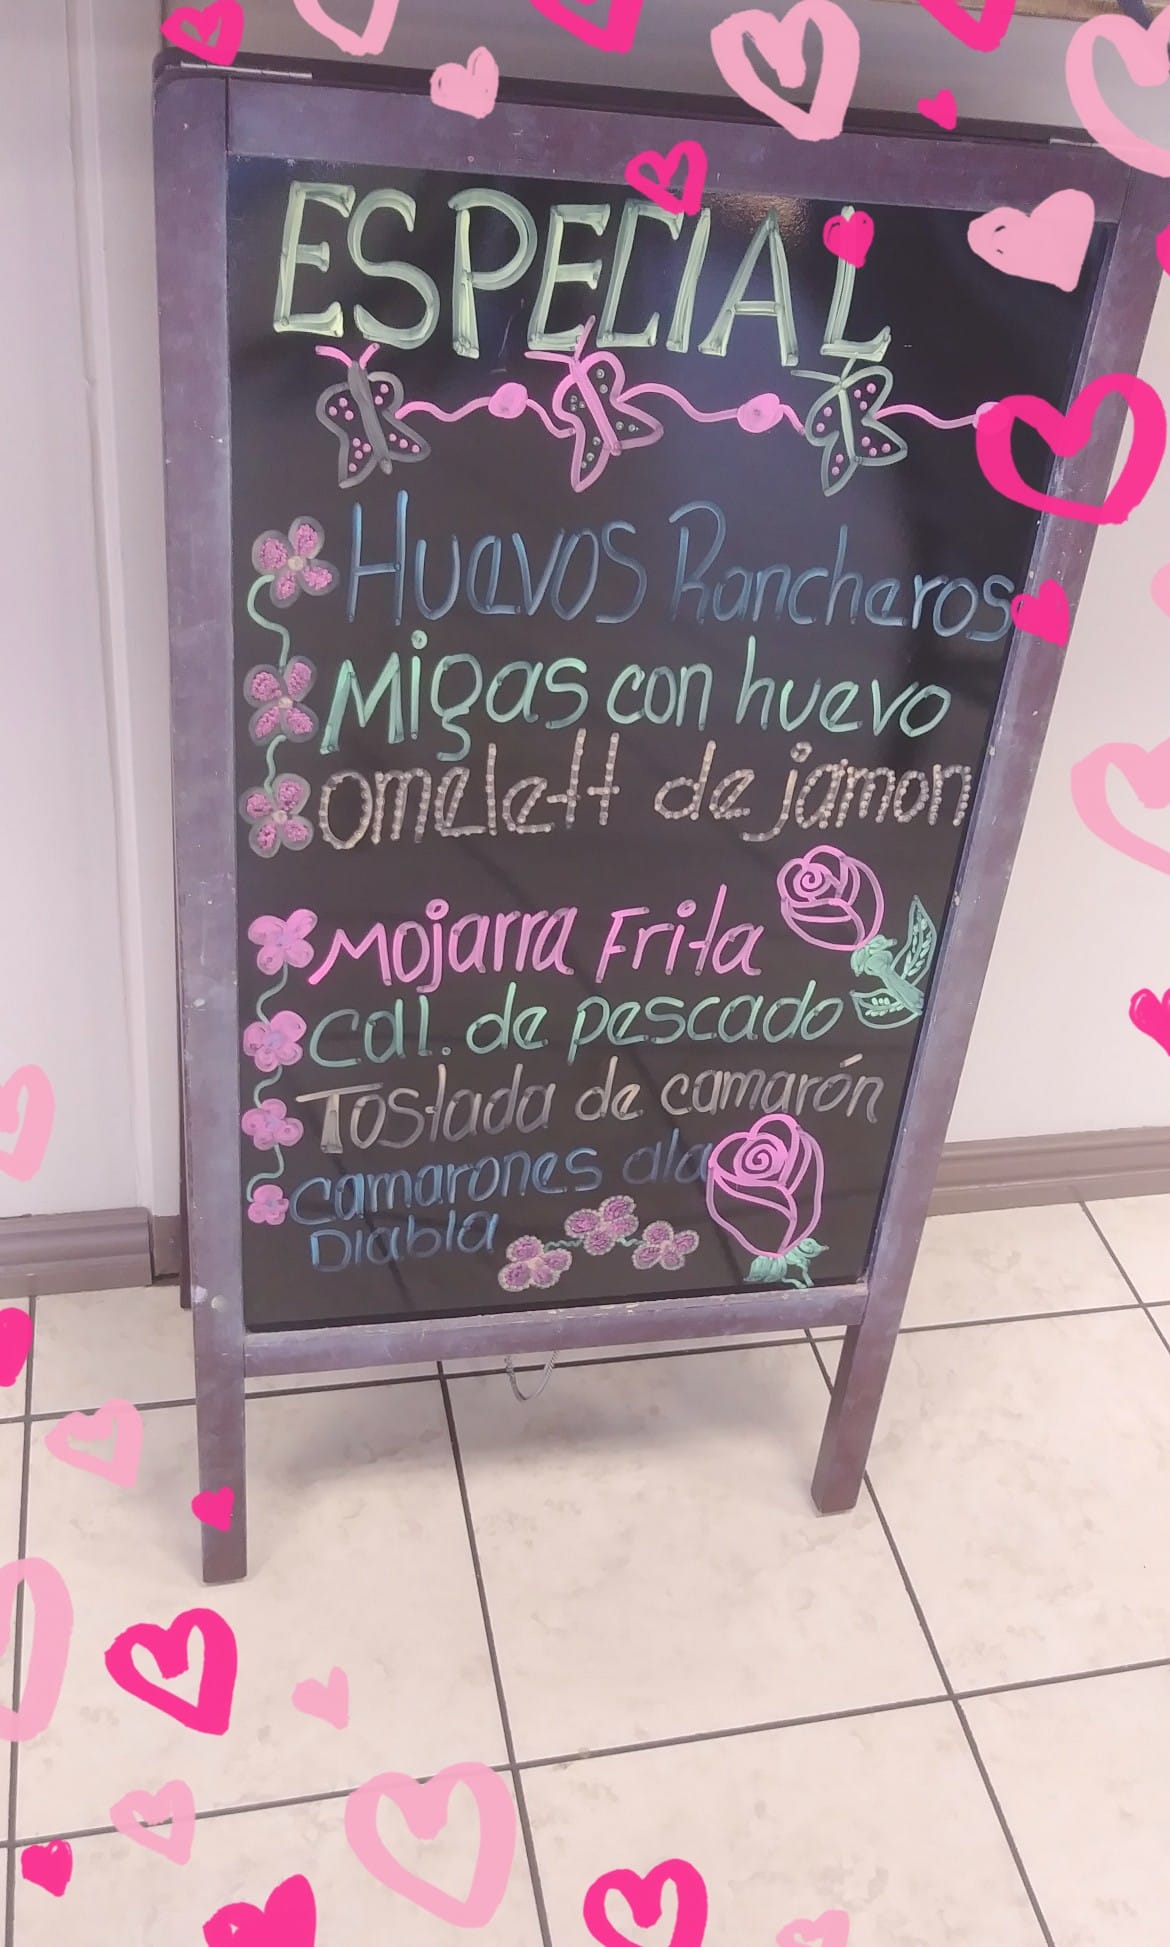 ESPECIAL
Huevos Rancheros
Migas con huevo
omelett de jamon
Mojarra Frita
Cal. de pescado
Tostada de camarón
camarones ala
Diabla